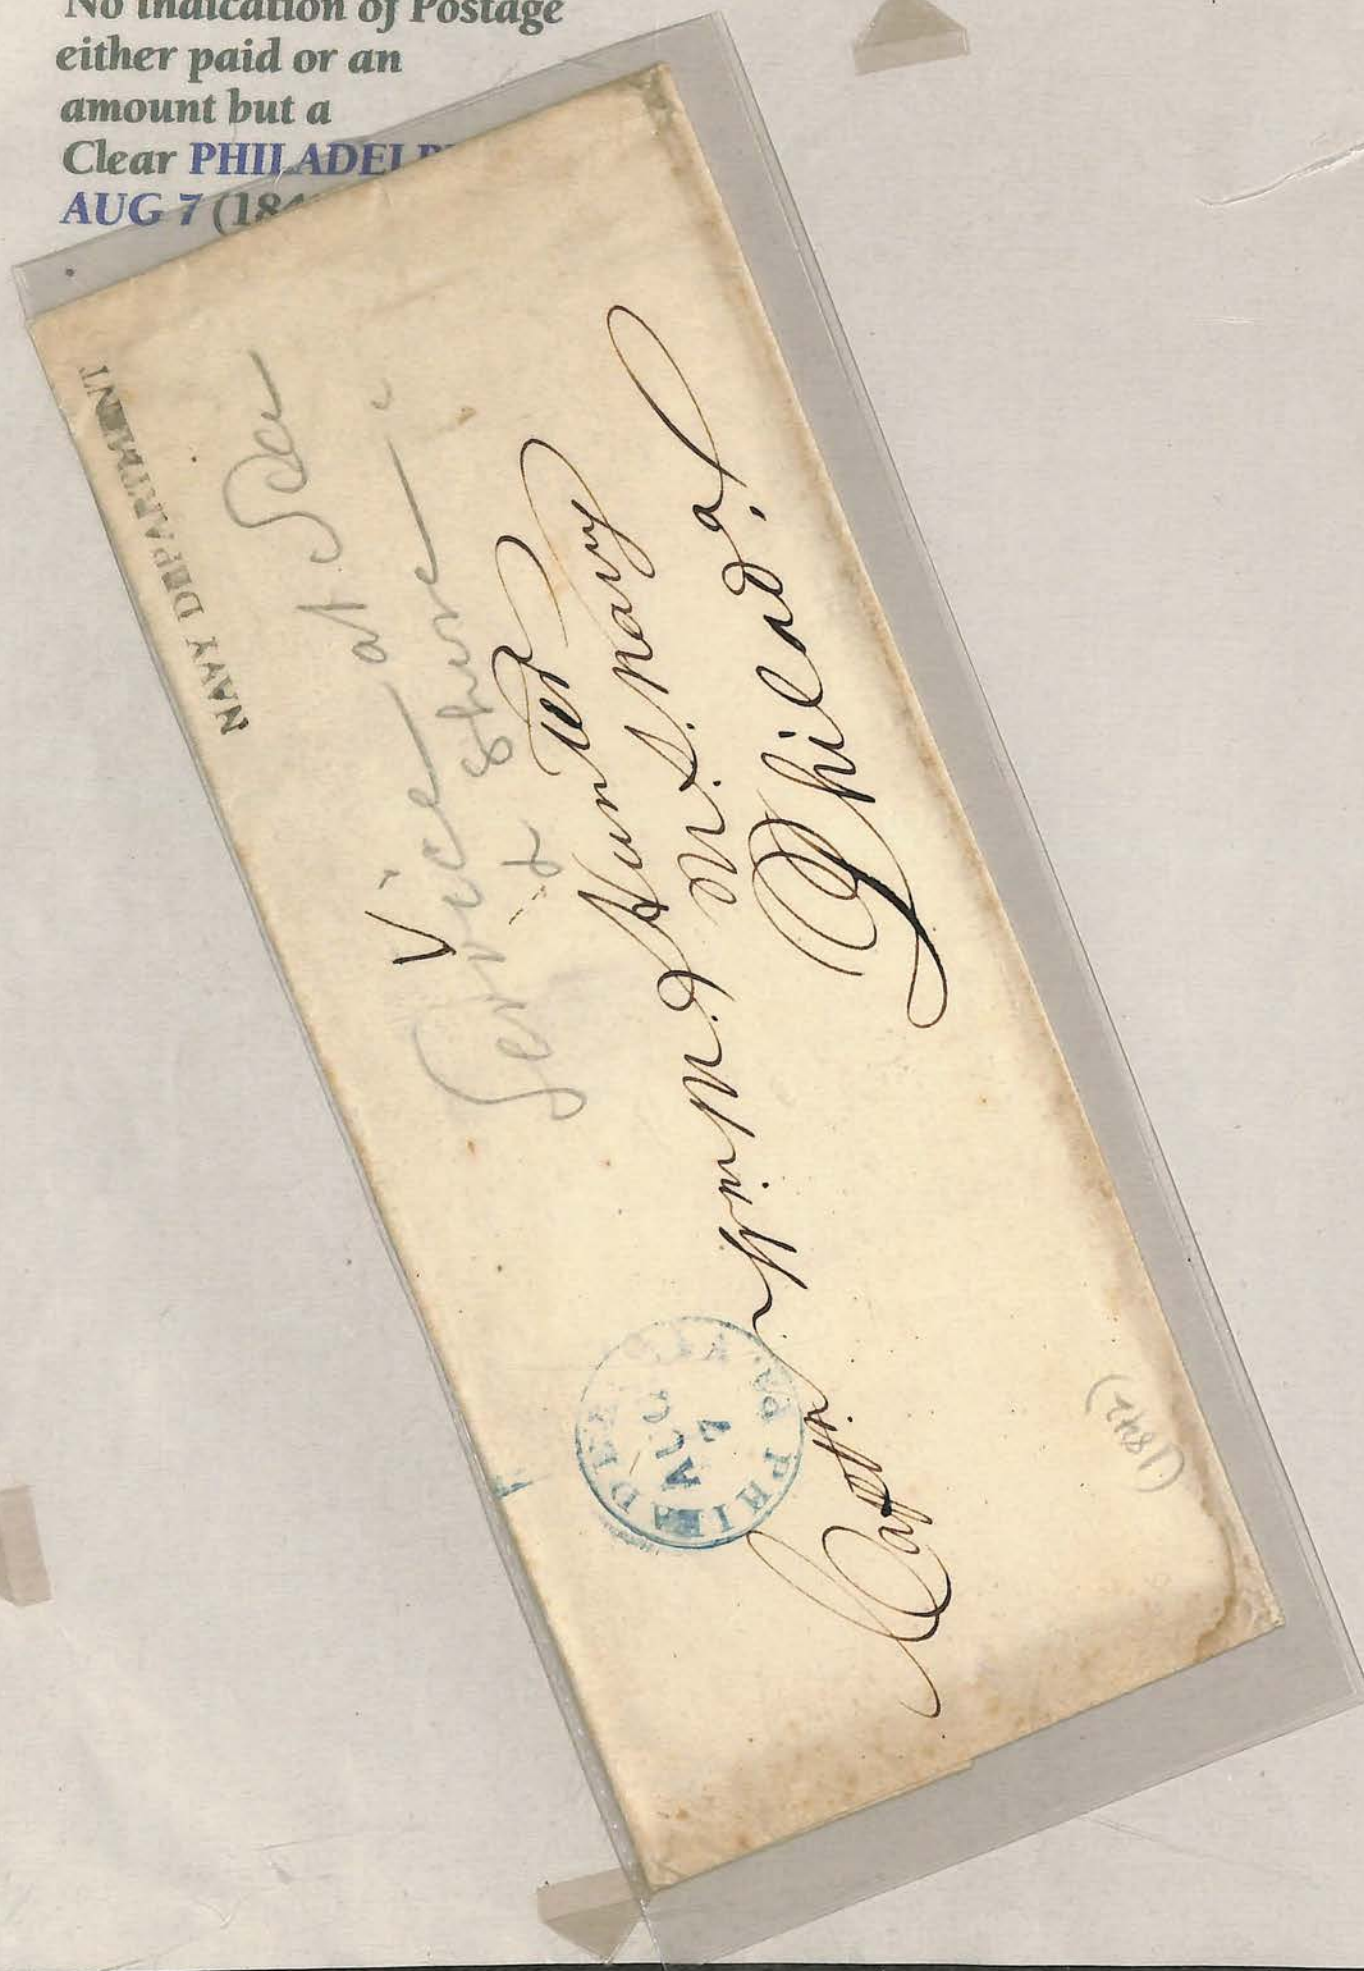 No indication of Postage
either paid or an
amount but a
Clear PHILADELP
AUG 7 (184
NAVY DEPARTMENT
Service at Sea
& Shore
V
Hunter
U.S. Navy
Philada.
PHILADEL PA.
AUG
7
(1842)